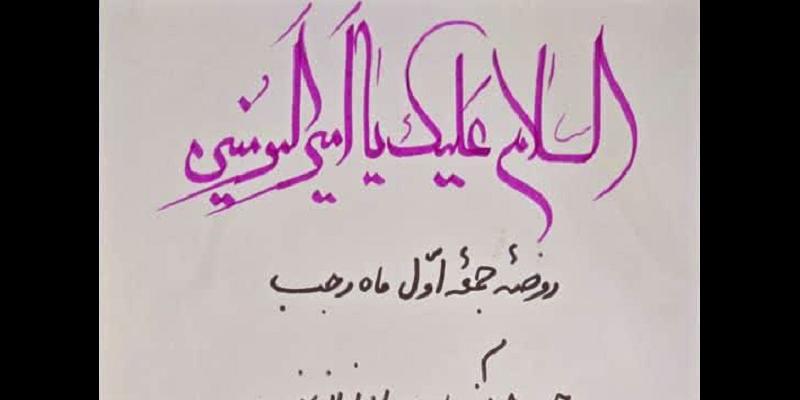 السلام علیک یا امیرالمومنین
روضهٔ جمعهٔ اوّل ماه رجب